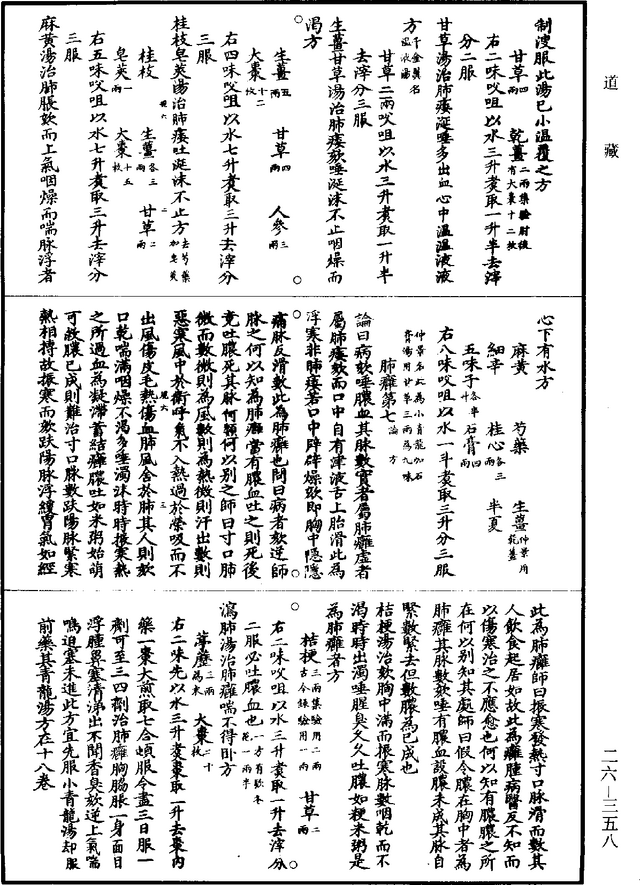 道藏
制溲服此湯已小溫覆之方
甘草四兩　乾薑二兩集驗肘後有大棗十二枚
右二味㕮咀以水三升煮取一升半去滓
分二服
甘草湯治肺痿涎唾多出血心中溫溫液液
方千金翼名溫液湯
甘草二兩㕮咀以水三升煮取一升半
去滓分三服
生薑甘草湯治肺痿欬唾涎沫不止咽燥而
渴方
生薑五兩　甘草四兩　人參三兩
大棗十二枚
右四味㕮咀以水七升煮取三升去滓分
三服
桂枝皂莢湯治肺痿吐涎沫不止方去芍藥加皂莢
桂枝　生薑各三兩　甘草二兩
皂莢一兩　大棗十五枚
右五味㕮咀以水七升煮取三升去滓分
三服
麻黃湯治肺脹欬而上氣咽燥而喘脉浮者
心下有水方
麻黃　芍藥　生薑仲景用乾薑
細辛　桂心各三兩　半夏
五味子各半升　石膏四兩
右八味㕮咀以水一斗煮取三升分三服
仲景名此為小青龍加石膏湯用甘草三兩為九味
肺癰第七論　方
論曰病欬唾膿血其脉數實者屬肺癰虛者
屬肺痿欬而口中自有津液舌上胎滑此為
浮寒非肺痿若口中辟辟燥欬即胸中隱隱
痛脉反滑數此為肺癰也問曰病者欬逆師
脉之何以知為肺癰當有膿血吐之則死後
竟吐膿死其脉何類何以別之師曰寸口肺
微而數微則為風數則為熱微則汗出數則
惡寒風中於衛呼氣不入熱過於榮吸而不
出風傷皮毛熱傷血肺風舍於肺其人則欬
口乾喘滿咽燥不渴多唾濁沫時時振寒熱
之所過血為凝滯蓄結癰膿吐如米粥始萌
可救膿已成則難治寸口脉數趺陽脉緊寒
熱相搏故振寒而欬趺陽脉浮緩胃氣如經
此為肺癰師曰振寒發熱寸口脉滑而數其
人飲食起居如故此為癰腫病醫反不知而
以傷寒治之不應愈也何以知有膿膿之所
在何以別知其處師曰假令膿在胸中者為
肺癰其脉數欬唾有膿血設膿未成其脉自
緊數緊去但數膿為已成也
桔梗湯治欬胸中滿而振寒脉數咽乾而不
渴時時出濁唾腥臭久久吐膿如粳米粥是
為肺癰者方
桔梗三兩集驗用二兩古今錄驗用一兩　甘草二兩
右二味㕮咀以水三升煮取一升去滓分
二服必吐膿血也一方有欵冬花一兩半
瀉肺湯治肺癰喘不得卧方
葶藶三兩為末　大棗二十枚
右二味先以水三升煮棗取二升去棗内
藥一棗大煎取七合頓服令盡三日服一
劑可至三四劑治肺癰胸脇脹一身面目
浮腫鼻塞清涕出不聞香臭欬逆上氣喘
鳴迫塞未進此方宜先服小青龍湯却服
前藥其青龍湯方在十八卷
二六—三五八